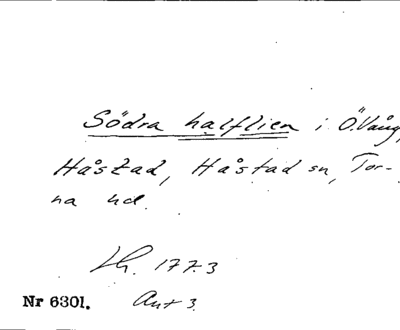 Södra halflien i Ö.Vång,
Håstad, Håstad sn, Tor-
na hd.
Lh. 1773
Nr 6301. Akt 3.